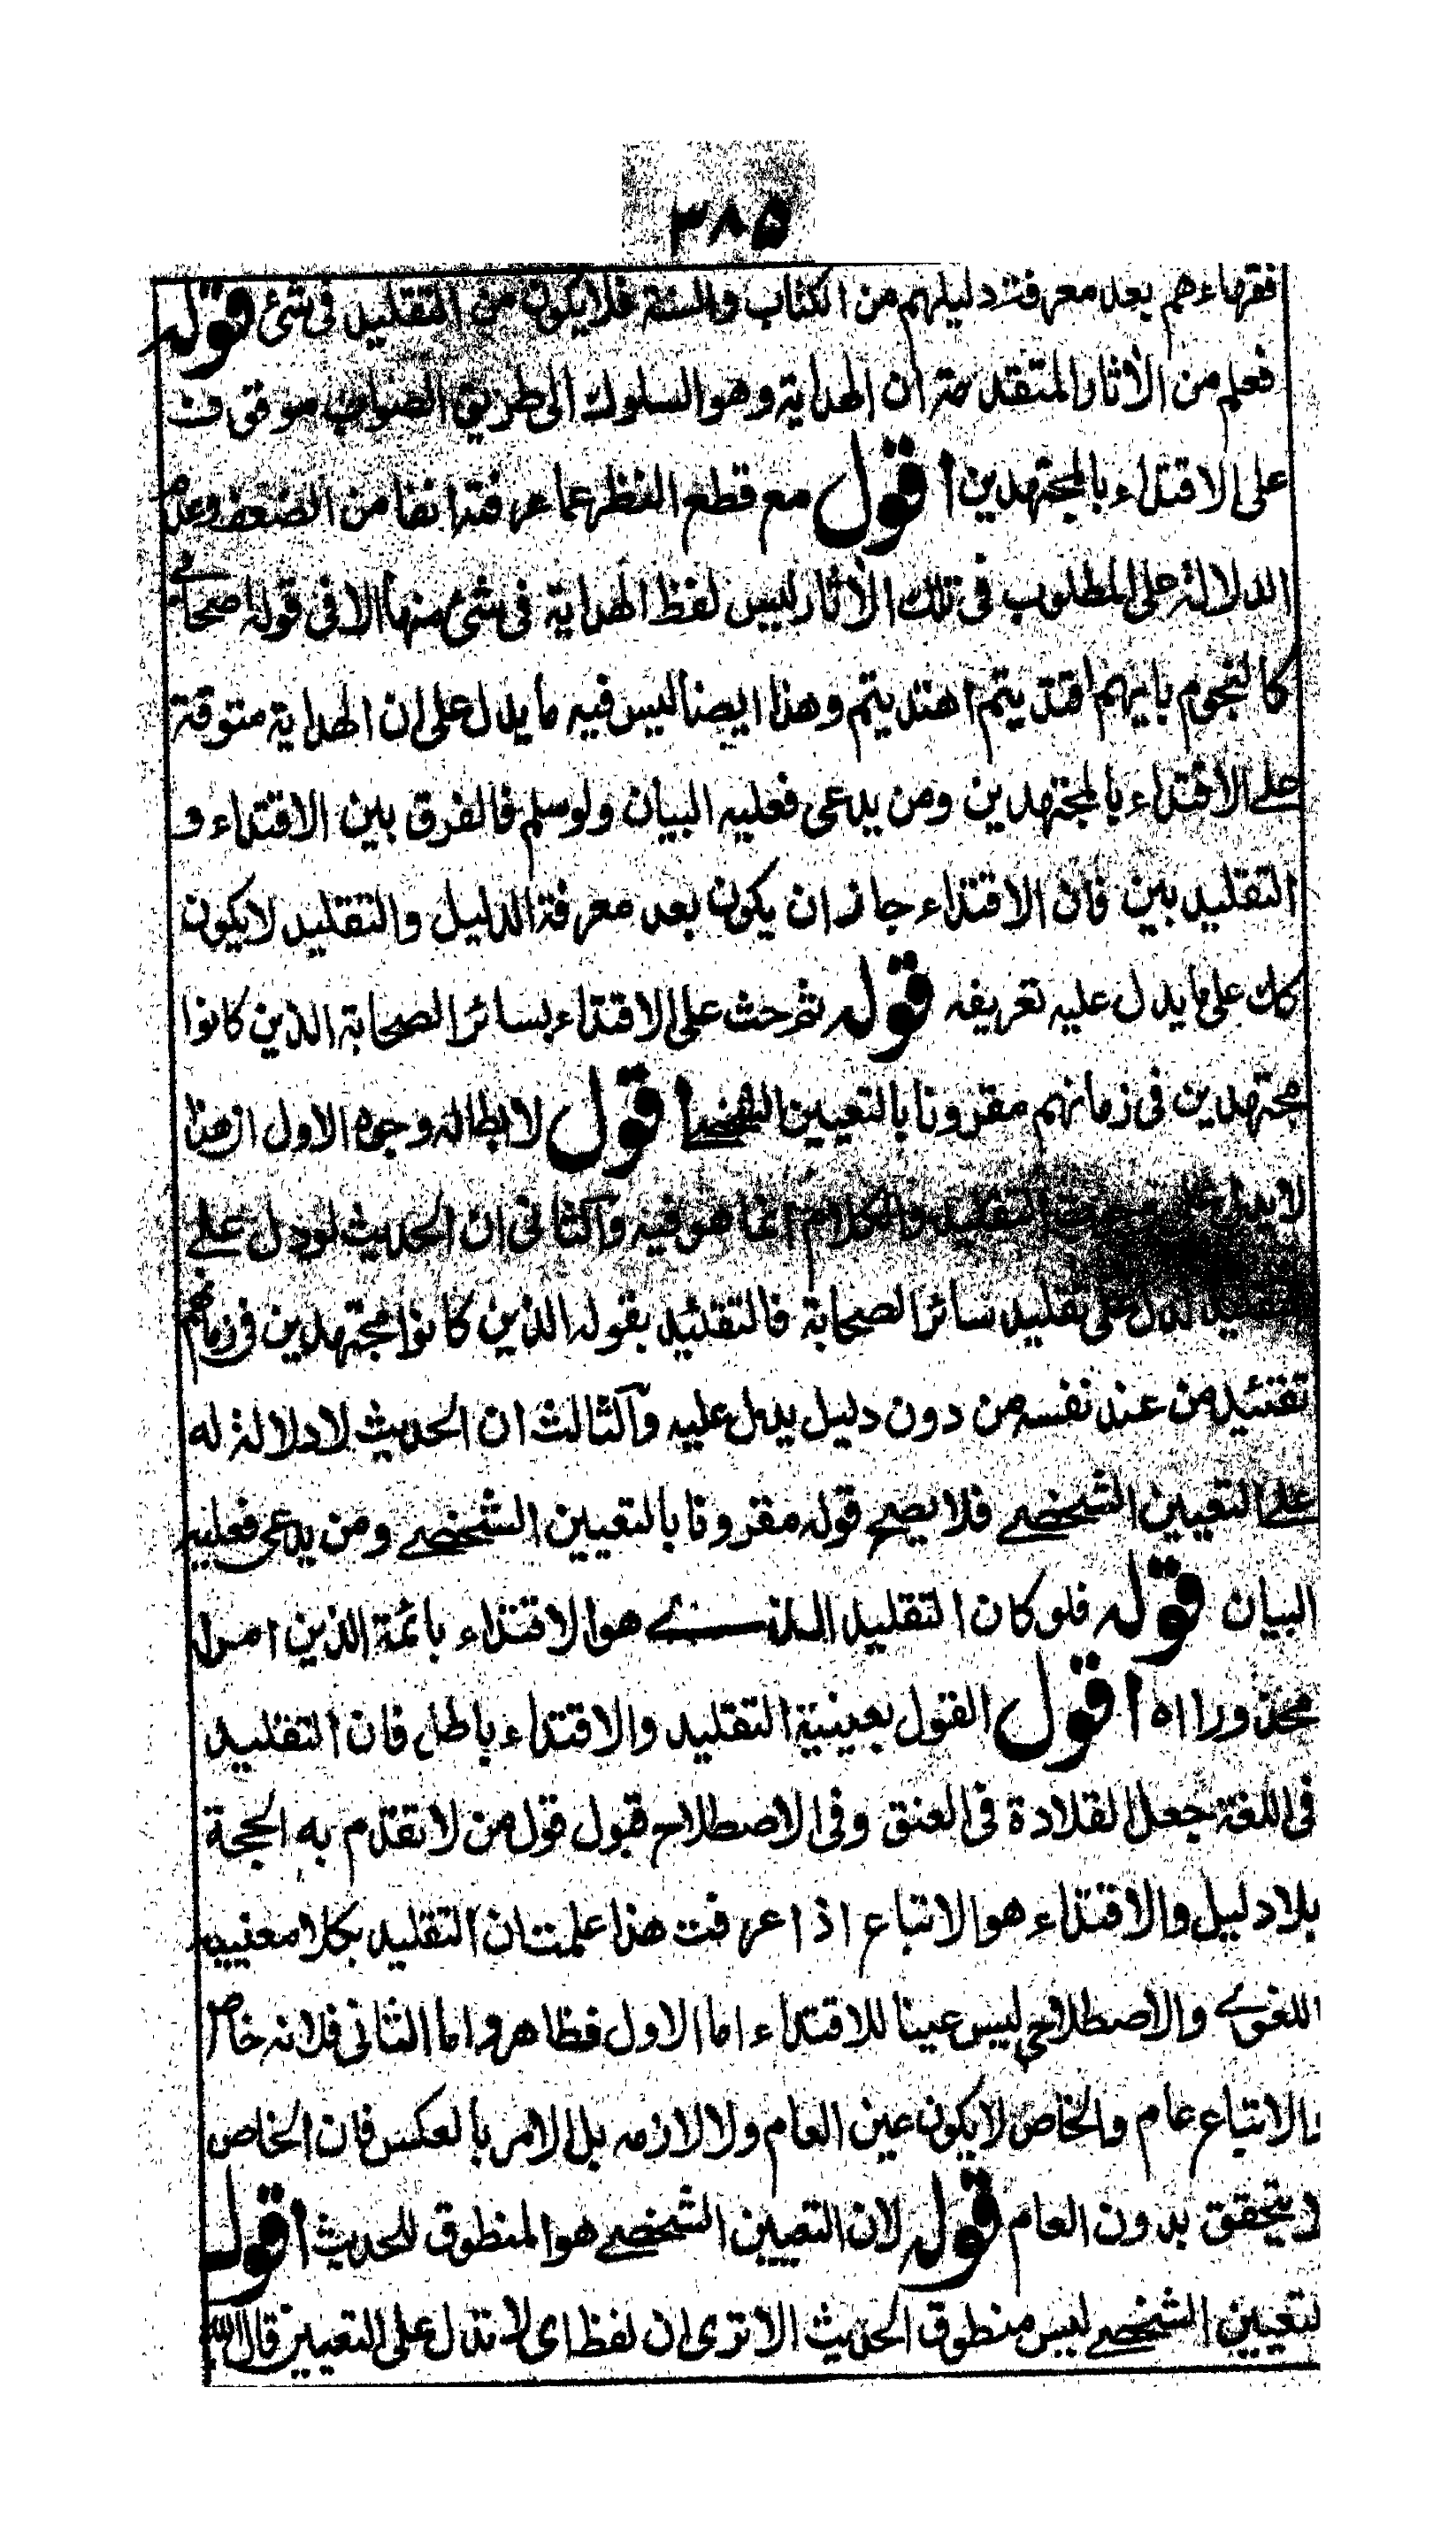 ٣٨٥
فقهاءهم بعد معرفة دليلهم من الكتاب والسنة فلا يكون من التقليد فى شئ قوله
فعلم من الاثار المتقدمة ان الهداية وهو السلوك الى طريق الصواب موقوفة
على الاقتداء بالمجتهدين اقول مع قطع النظر عما عرفته انفا من الضعف وعدم
الدلالة على المطلوب فى تلك الاثار ليس لفظ الهداية فى شئ منها الا فى قوله اصحابے
كالنجوم بايهم اقتديتم اهتديتم وهذا ايضا ليس فيه ما يدل على ان الهداية متوقفة
علے الاقتداء بالمجتهدين ومن يدعى فعليه البيان ولو سلم فالفرق بين الاقتداء و
التقليد بين فان الاقتداء جاز ان يكون بعد معرفة الدليل والتقليد لا يكون
كك على ما يدل عليه تعريفه قوله ثم حث على الاقتداء بسائر الصحابة الذين كانوا
مجتهدين فى زمانهم مقرونا بالتعيين الشخصے اقول لابطاله وجوه الاول ان هذا
لا يدل على وجوب التقليد والكلام انما هو فيه والثانى ان الحديث لو دل علے
التقليد لدل على تقليد سائر الصحابة فالتقئيد بقوله الذين كانوا مجتهدين فى زمانهم
تقئيد من عند نفسه من دون دليل يدل عليه والثالث ان الحديث لا دلالة له
على التعيين الشخصے فلا يصح قوله مقرونا بالتعيين الشخصے ومن يدعى فعليه
البيان قوله فلو كان التقليد الذے هو الاقتداء بائمة الذين امرا
محذورا اه اقول القول بعينية التقليد والاقتداء باطل فان التقليد
فى اللغة جعل القلادة فى العنق وفى الاصطلاح قبول قول من لا تقدم به الحجة
بلا دليل والاقتداء هو الاتباع اذا عرفت هذا علمت ان التقليد بكلا معنييه
اللغوے والاصطلاحى ليس عينا للاقتداء اما الاول فظاهر واما الثانى فلانه خاص
والاتباع عام والخاص لا يكون عين العام ولا لازمه بل الامر بالعكس فان الخاص
لا يتحقق بدون العام قوله لان التعيين الشخصے هو المنطوق للحديث اقول
لتعيين الشخصے ليس منطوق الحديث الا ترى ان لفظ اى لا تدل على التعيين قال الله